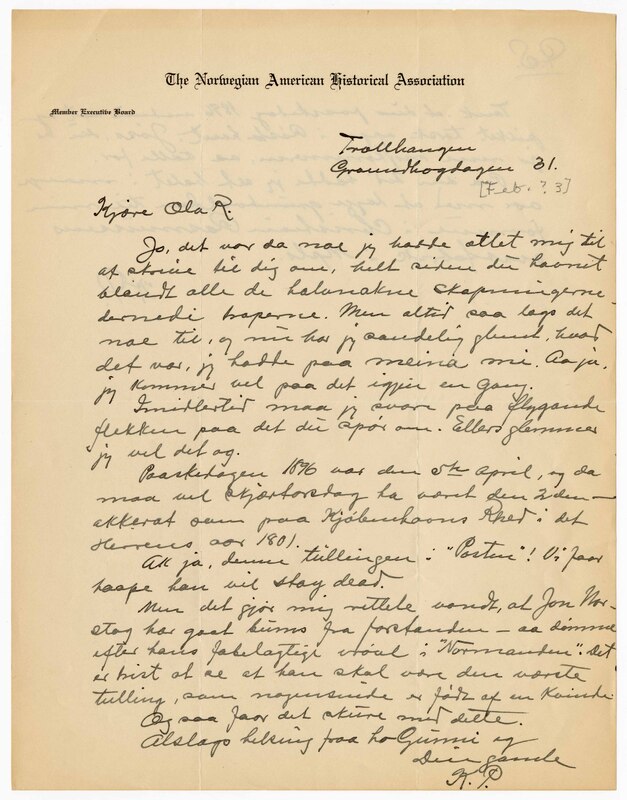 The Norwegian American Historical Association
Member Executive Board
Trollhaugen
Groundhogdagen 31.
[Feb. ? 3]
Kjøre Ola R.
Jo, det var da noe jy hadde etlet mig til
at skrive til dig om, helt siden du havnet
blandt alle de halvnakne skapningerne
dernedi traperne. Men altid saa lags det
noe til, og nu har jy sandelig glemt, hvad
det var, jy hadde paa meina mi. Aa ja,
jy kommer vel paa det igjen en Gang.
Imidlertid maa jy svare paa flygande
flekken paa det du spör om. Ellers glemmer
jy vel det og.
Paaskedagen 1896 var den 5te April, og da
maa vel Skjærtorsdag ha været den 2den —
akkerat som paa Kjöbenhavns Rhed i det
Herrens aar 1801.
Ak ja, denne tullingen i "Posten"! Vi faar
haape han vil stay dead.
Men det gjör mig rettele vondt, at Jon Nor-
stog har gaat bums fra forstanden — aa dömme
efter hans fabelagtige vrövl i "Normanden". Det
er trist at se at han skal være den værste
tulling, som nogensinde er födt af en Kvinde
Og saa faar det skure med dette.
Alslags helsing fraa ho Gunni og
Din gamle
K. P.